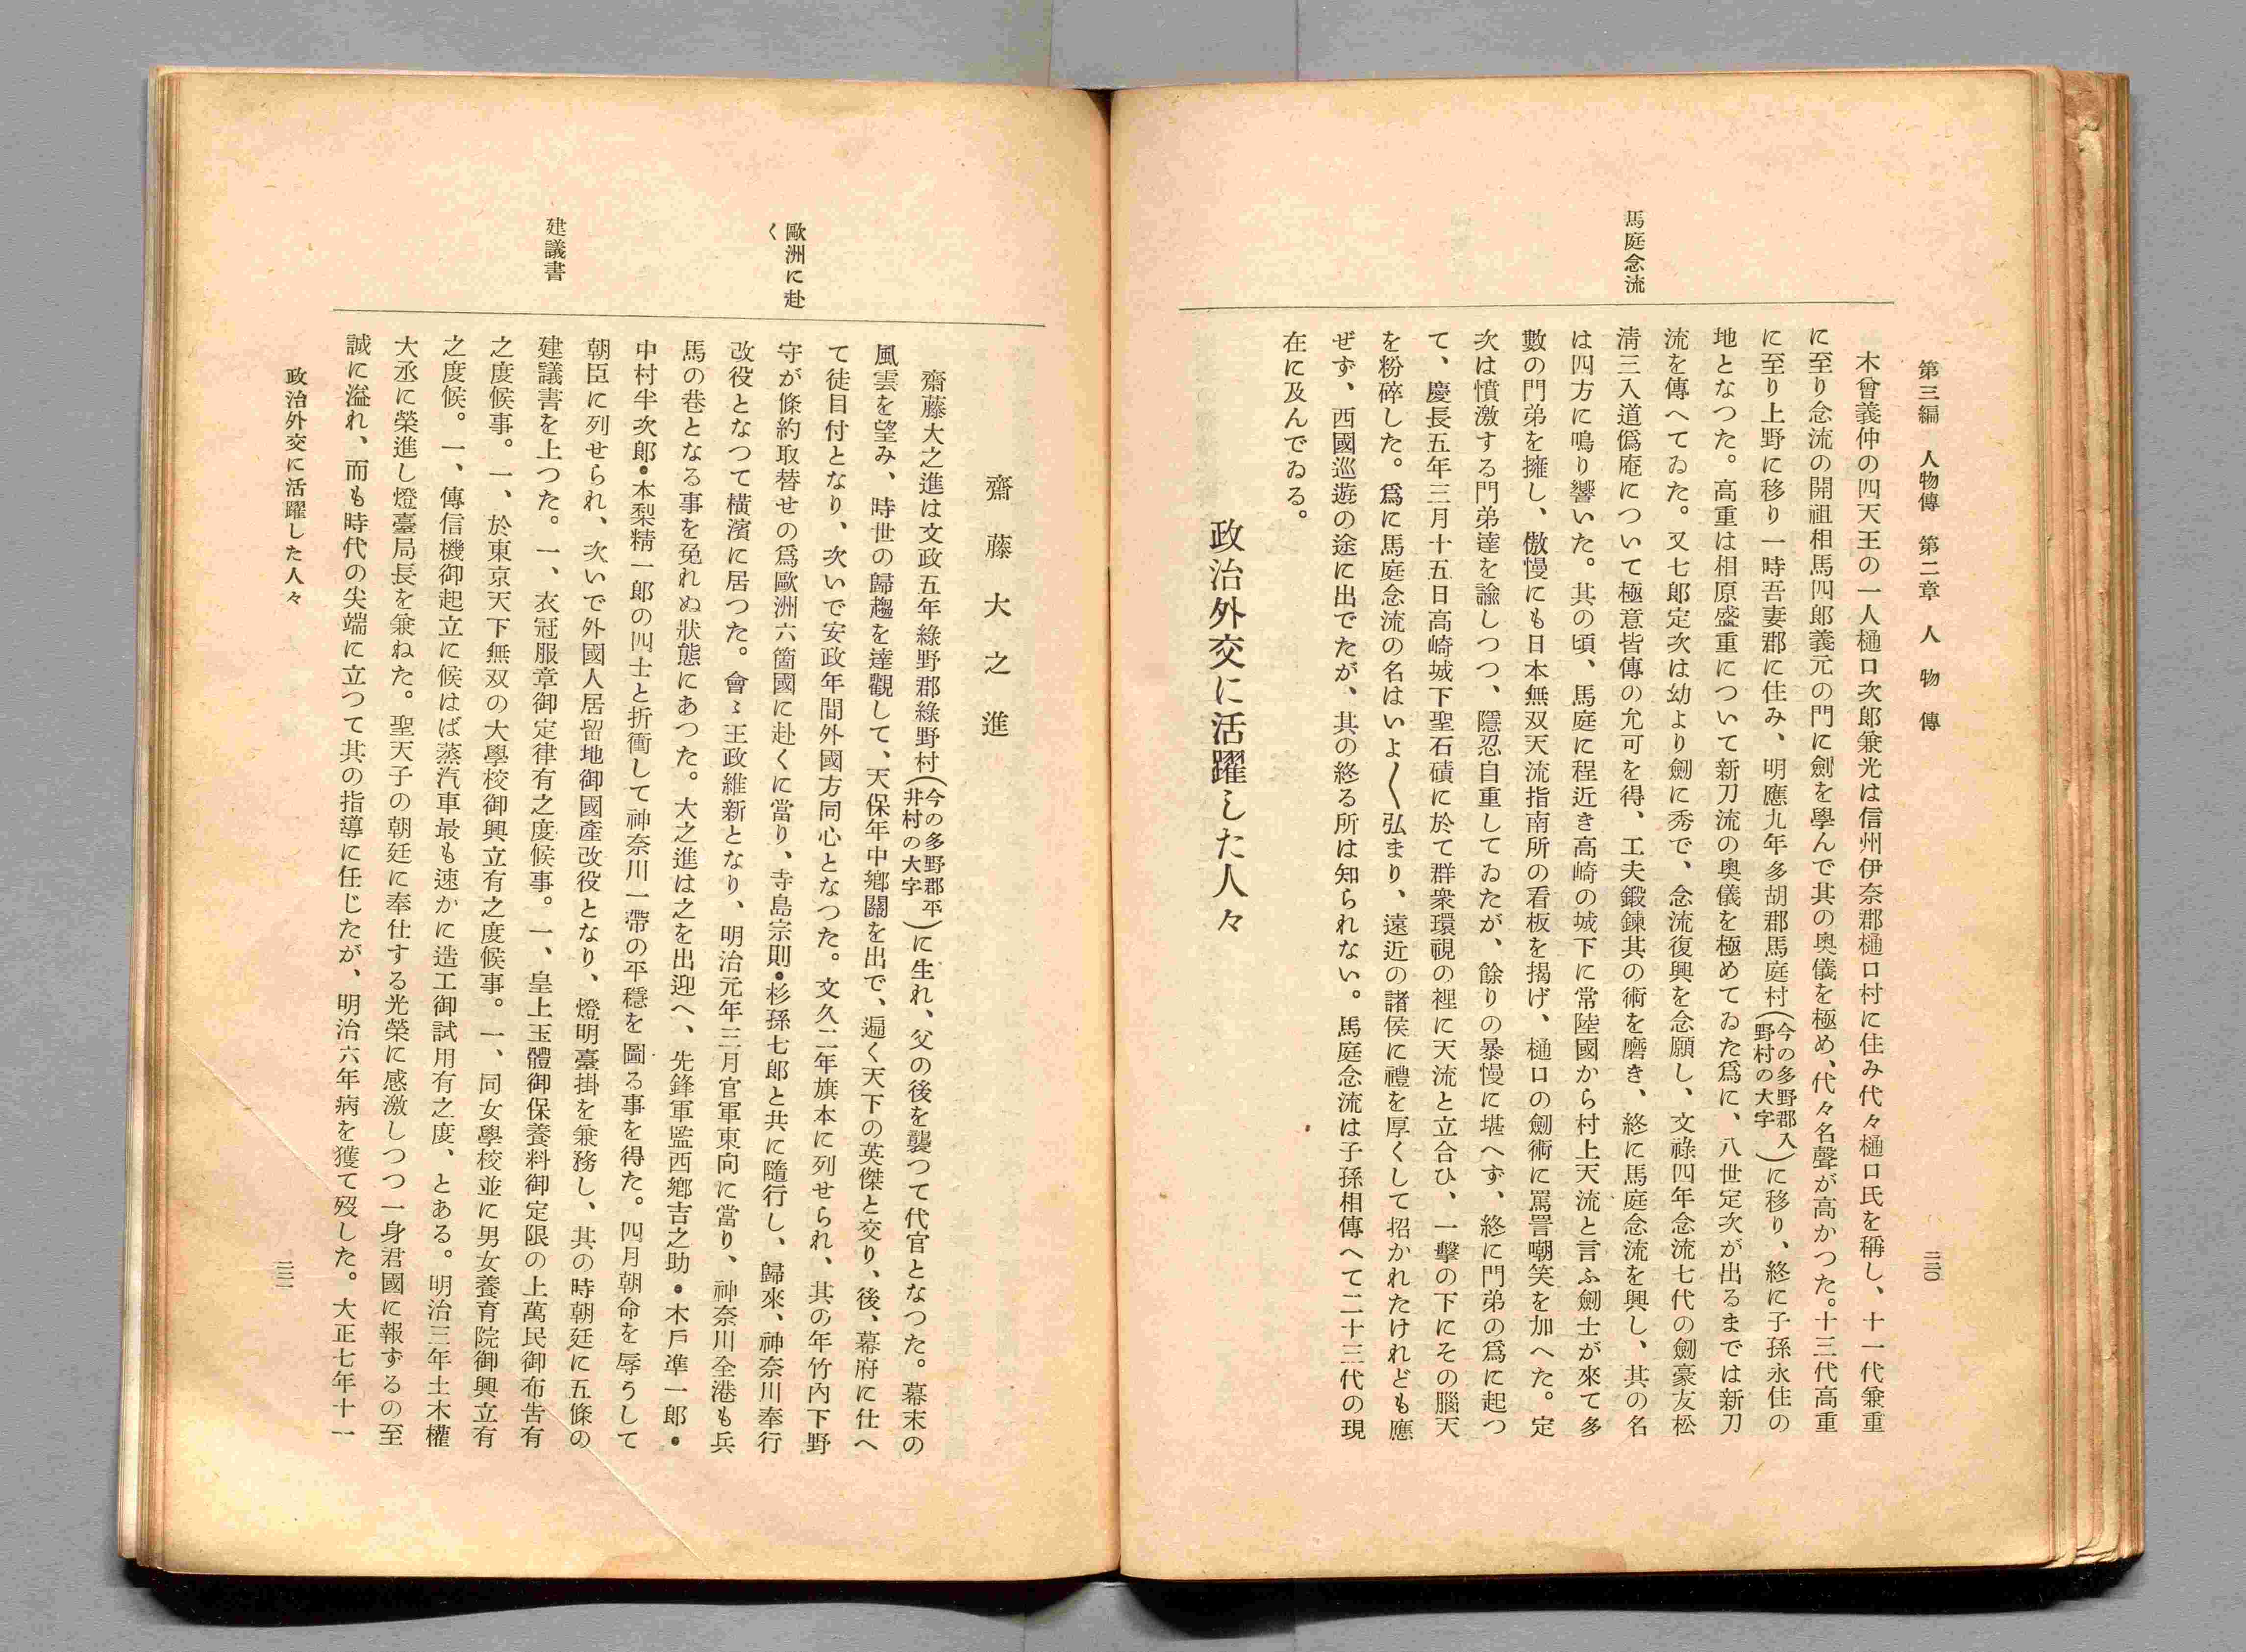 第三編　人物傳　第二章　人物傳
三二〇
馬庭念流
木曾義仲の四天王の一人樋口次郎兼光は信州伊奈郡樋口村に住み代々樋口氏を稱し、十一代兼重
に至り念流の開祖相馬四郎義元の門に劍を學んで其の奧儀を極め、代々名聲が高かつた。十三代高重
に至り上野に移り一時吾妻郡に住み、明應九年多胡郡馬庭村(今の多野郡入野村の大字)に移り、終に子孫永住の
地となつた。高重は相原盛重について新刀流の奧儀を極めてゐた爲に、八世定次が出るまでは新刀
流を傳へてゐた。又七郎定次は幼より劍に秀で、念流復興を念願し、文祿四年念流七代の劍豪友松
淸三入道僞庵について極意皆傳の允可を得、工夫鍛鍊其の術を磨き、終に馬庭念流を興し、其の名
は四方に鳴り響いた。其の頃、馬庭に程近き高崎の城下に常陸國から村上天流と言ふ劍士が來て多
數の門弟を擁し、傲慢にも日本無双天流指南所の看板を揭げ、樋口の劍術に罵詈嘲笑を加へた。定
次は憤激する門弟達を諭しつつ、隱忍自重してゐたが、餘りの暴慢に堪へず、終に門弟の爲に起つ
て、慶長五年三月十五日高崎城下聖石磧に於て群衆環視の裡に天流と立合ひ、一擊の下にその腦天
を粉碎した。爲に馬庭念流の名はいよ〱弘まり、遠近の諸侯に禮を厚くして招かれたけれども應
ぜず、西國巡遊の途に出でたが、其の終る所は知られない。馬庭念流は子孫相傳へて二十三代の現
在に及んでゐる。
政治外交に活躍した人々
齋藤大之進
歐洲に赴く
建議書
齋藤大之進は文政五年綠野郡綠野村(今の多野郡平井村の大字)に生れ、父の後を襲つて代官となつた。幕末の
風雲を望み、時世の歸趨を達觀して、天保年中鄕關を出で、遍く天下の英傑と交り、後、幕府に仕へ
て徒目付となり、次いで安政年間外國方同心となつた。文久二年旗本に列せられ、其の年竹內下野
守が條約取替せの爲歐洲六箇國に赴くに當り、寺島宗則・杉孫七郎と共に隨行し、歸來、神奈川奉行
改役となつて橫濱に居つた。會〻王政維新となり、明治元年三月官軍東向に當り、神奈川全港も兵
馬の巷となる事を免れぬ狀態にあつた。大之進は之を出迎へ、先鋒軍監西鄕吉之助・木戶準一郎・
中村半次郎・木梨精一郎の四士と折衝して神奈川一帶の平穩を圖る事を得た。四月朝命を辱うして
朝臣に列せられ、次いで外國人居留地御國產改役となり、燈明臺掛を兼務し、其の時朝廷に五條の
建議書を上つた。一、衣冠服章御定律有之度候事。一、皇上玉體御保養料御定限の上萬民御布吿有
之度候事。一、於東京天下無双の大學校御興立有之度候事。一、同女學校並に男女養育院御興立有
之度候。一、傳信機御起立に候はば蒸汽車最も速かに造工御試用有之度、とある。明治三年土木權
大丞に榮進し燈臺局長を兼ねた。聖天子の朝廷に奉仕する光榮に感激しつつ一身君國に報ずるの至
誠に溢れ、而も時代の尖端に立つて其の指導に任じたが、明治六年病を獲て歿した。大正七年十一
政治外交に活躍した人々
三二一